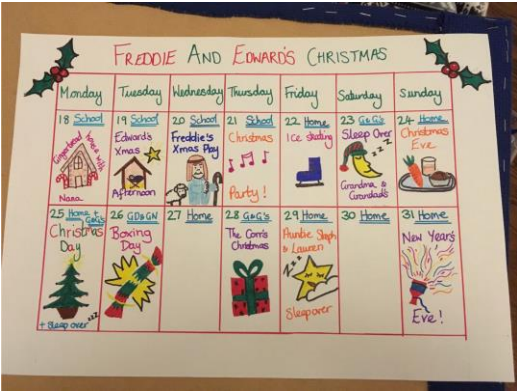 FREDDIE AND EDWARD'S CHRISTMAS
Monday Tuesday Wednesday Thursday Friday Saturday Sunday
18 School
Gingerbread house with
Nana
19 School
Edward's
Xmas
Afternoon
20 School
Freddie's
Xmas Play
21 School
Christmas
Party!
22 Home
Ice skating
23 G&G's
Sleep Over
zzz
Grandma &
Grandad's
24 Home
Christmas
Eve
25 Home +
G&G's
Christmas
Day
zzz
+ Sleep over
26 GD&GN
Boxing
Day
27 Home
28 G&G's
The Corn's
Christmas
29 Home
Auntie Steph
& Lauren
zzz
Sleepover
30 Home
31 Home
New Year's
Eve!